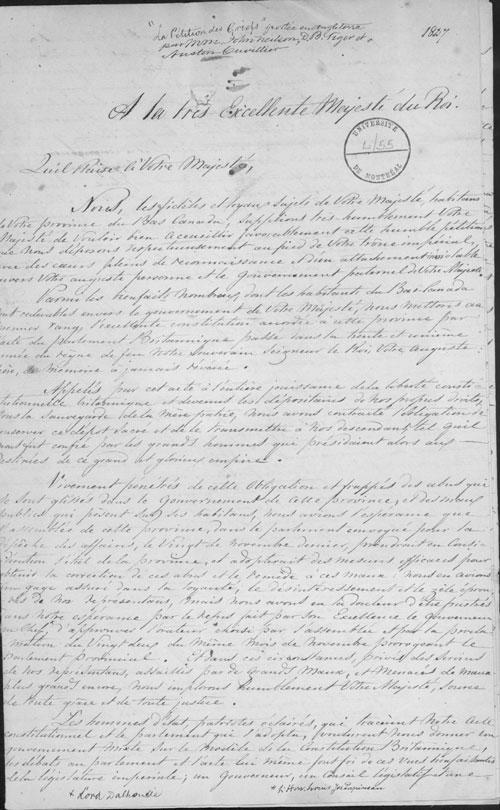 "La Pétition des Griefs" portée en Angleterre
par MM. John Neilson, D.B. Viger et
Austin Cuvillier
1827
A la très Excellente Majesté du Roi.
UNIVERSITÉ
DE MONTRÉAL
Qu'il Plaise à Votre Majesté,
Nous, les fidèles et loyaux Sujets de Votre Majesté, habitans
de Votre province du Bas Canada, Supplions très humblement Votre
Majesté de Vouloir bien Accueillir favorablement cette humble pétition
que Nous déposons respectueusement au pied de Votre trône impérial,
avec des cœurs pleins de reconnaissance et d'un attachement inviolable
envers Votre auguste personne et le Gouvernement paternel de Votre Majesté.
Parmi les bienfaits nombreux, dont les habitants du Bas-Canada
sont redevables envers le gouvernement de Votre Majesté, nous mettons au
premier rang, l'excellente constitution accordée à cette province par
l'acte du parlement Britannique passé dans la trente et unième
année du règne de feu Notre Souverain Seigneur le Roi, Votre Auguste
père, de mémoire à jamais révérée.
Appelés par cet acte à l'entière jouissance de la liberté consti-
tutionnelle britannique et devenus les dépositaires de nos propres droits,
sous la Sauvegarde de la mère patrie, nous avons contracté l'obligation de
conserver ce dépôt sacré et de le transmettre à nos descendants tel qu'il
nous fut confié par les grands hommes qui présidaient alors aux
destinées de ce grand et glorieux empire.
Vivement pénétrés de cette Obligation et frappés des abus qui
se sont glissés dans le Gouvernement de cette province, et des maux
publics qui pèsent sur ses habitans, nous avions l'espérance que
l'assemblée de cette province, dans le parlement convoqué pour la
dépêche des affaires, le Vingt de novembre dernier, prendrait en Consi-
dération l'état de la province, et adopterait des mesures efficaces pour
obtenir la correction de ces abus et le remède à ces maux: nous en avions
un gage assuré dans la loyauté, le désintéressement et le zèle éprou-
vés de nos représentans, mais nous avons eu la douleur d'être frustrés
dans notre espérance par le refus fait par Son Excellence le Gouverneur
en Chef d'approuver l'orateur choisi par l'assemblée et par la procla-
mation du Vingt deux du même mois de novembre prorogeant le
parlement Provincial. Et dans ces circonstances, privés des Services
de nos représentans, assaillis par de grands maux, et menacés de maux
plus grands encore, nous implorons humblement Votre Majesté, Source
de toute grâce et de toute justice.
Les hommes d'état, patriotes éclairés, qui tracèrent Notre Acte
constitutionnel et le parlement qui l'adopta, voulurent Nous donner un
gouvernement Mixte Sur le Modèle de la Constitution Britannique,
les débats au parlement et l'acte lui même font foi de ces Vues bienfaisantes
de la législature impériale; un Gouverneur, un Conseil législatif et une
+ Lord Dalhousie
* L'Hon. Louis Jos. Papineau